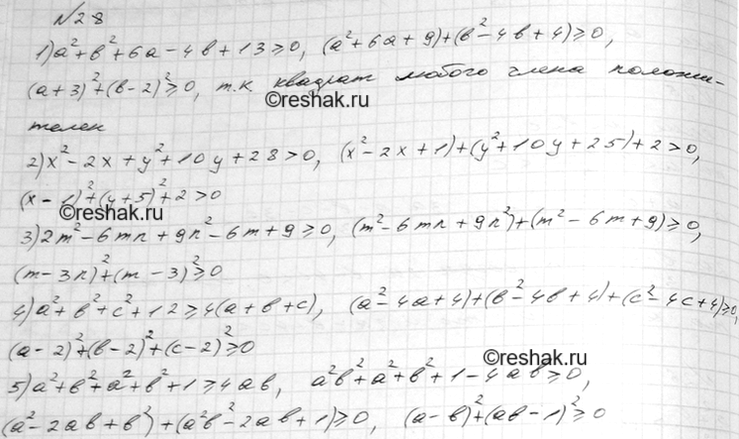 №28
1) a²+b²+6a-4b+13≥0, (a²+6a+9)+(b²-4b+4)≥0,
(a+3)²+(b-2)²≥0, т.к квадрат любого члена положи-
©reshak.ru
телен
2) x²-2x+y²+10y+28>0, (x²-2x+1)+(y²+10y+25)+2>0,
(x-1)²+(y+5)²+2>0
©reshak.ru
3) 2m²-6mn+9n²-6m+9≥0, (m²-6mn+9n²)+(m²-6m+9)≥0,
(m-3n)²+(m-3)²≥0
4) a²+b²+c²+12≥4(a+b+c), (a²-4a+4)+(b²-4b+4)+(c²-4c+4)≥0,
(a-2)²+(b-2)²+(c-2)²≥0
©reshak.ru
5) a²b²+a²+b²+1≥4ab, a²b²+a²+b²+1-4ab≥0,
(a²-2ab+b²)+(a²b²-2ab+1)≥0, (a-b)²+(ab-1)²≥0